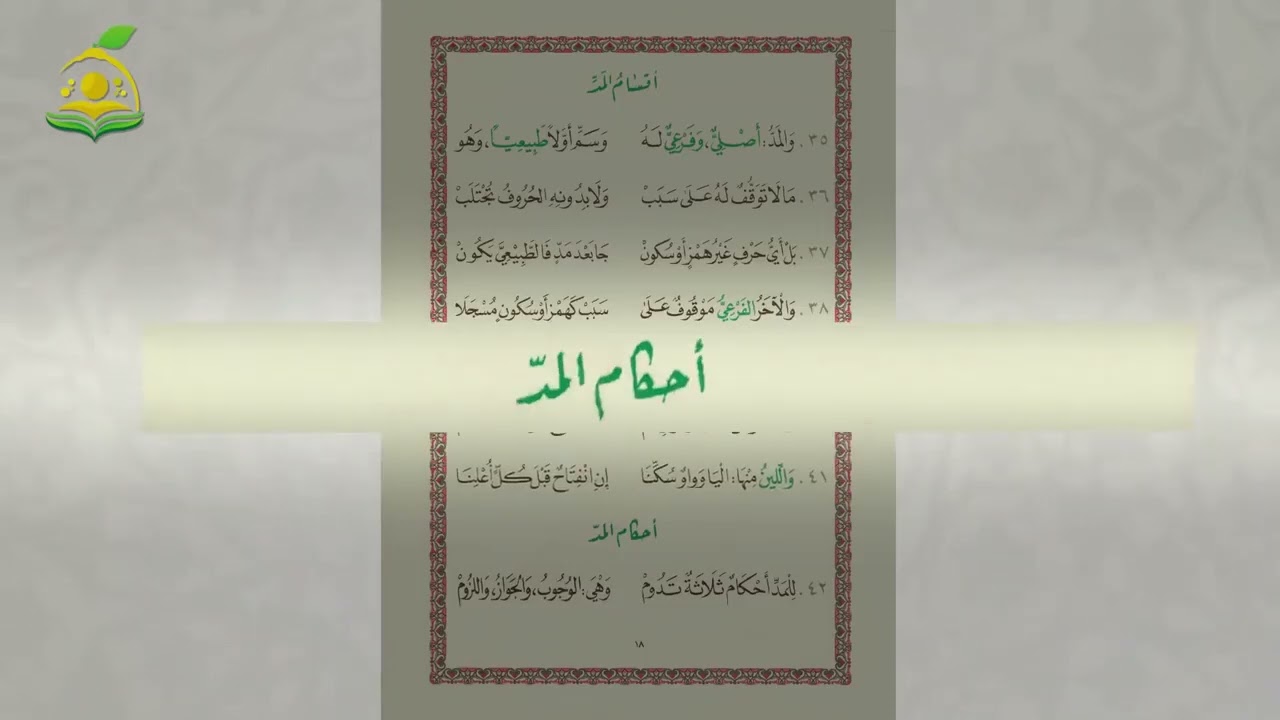 أقسام المدّ
٣٥. وَالْمَدُّ: أَصْلِيٌّ، وَفَرْعِيٌّ لَهُ وَسَمِّ أَوَّلاً طَبِيعِيّاً، وَهُو
٣٦. مَا لَا تَوَقُّفٌ لَهُ عَلَى سَبَبْ وَلَا بِدُونِهِ الحُرُوفُ تُجْتَلَبْ
٣٧. بَلْ أَيُّ حَرْفٍ غَيْرُ هَمْزٍ أَوْ سُكُونْ جَا بَعْدَ مَدٍّ فَالطَّبِيْعِيَّ يَكُونْ
٣٨. وَالْآخَرُ الفَرْعِيُّ مَوْقُوفٌ عَلَى سَبَبْ كَهَمْزٍ أَوْ سُكُونٍ مُسْجَلَا
أحكام المدّ
٤١. وَاللِّينُ مِنْهَا: الْيَا وَوَاوٌ سُكِّنَا إِنِ انْفِتَاحٌ قَبْلَ كُلٍّ أُعْلِنَا
أحكام المدّ
٤٢. لِلْمَدِّ أَحْكَامٌ ثَلَاثَةٌ تَدُومْ وَهْيَ: الْوُجُوبُ، وَالْجَوَازُ، وَاللُّزُومْ
١٨